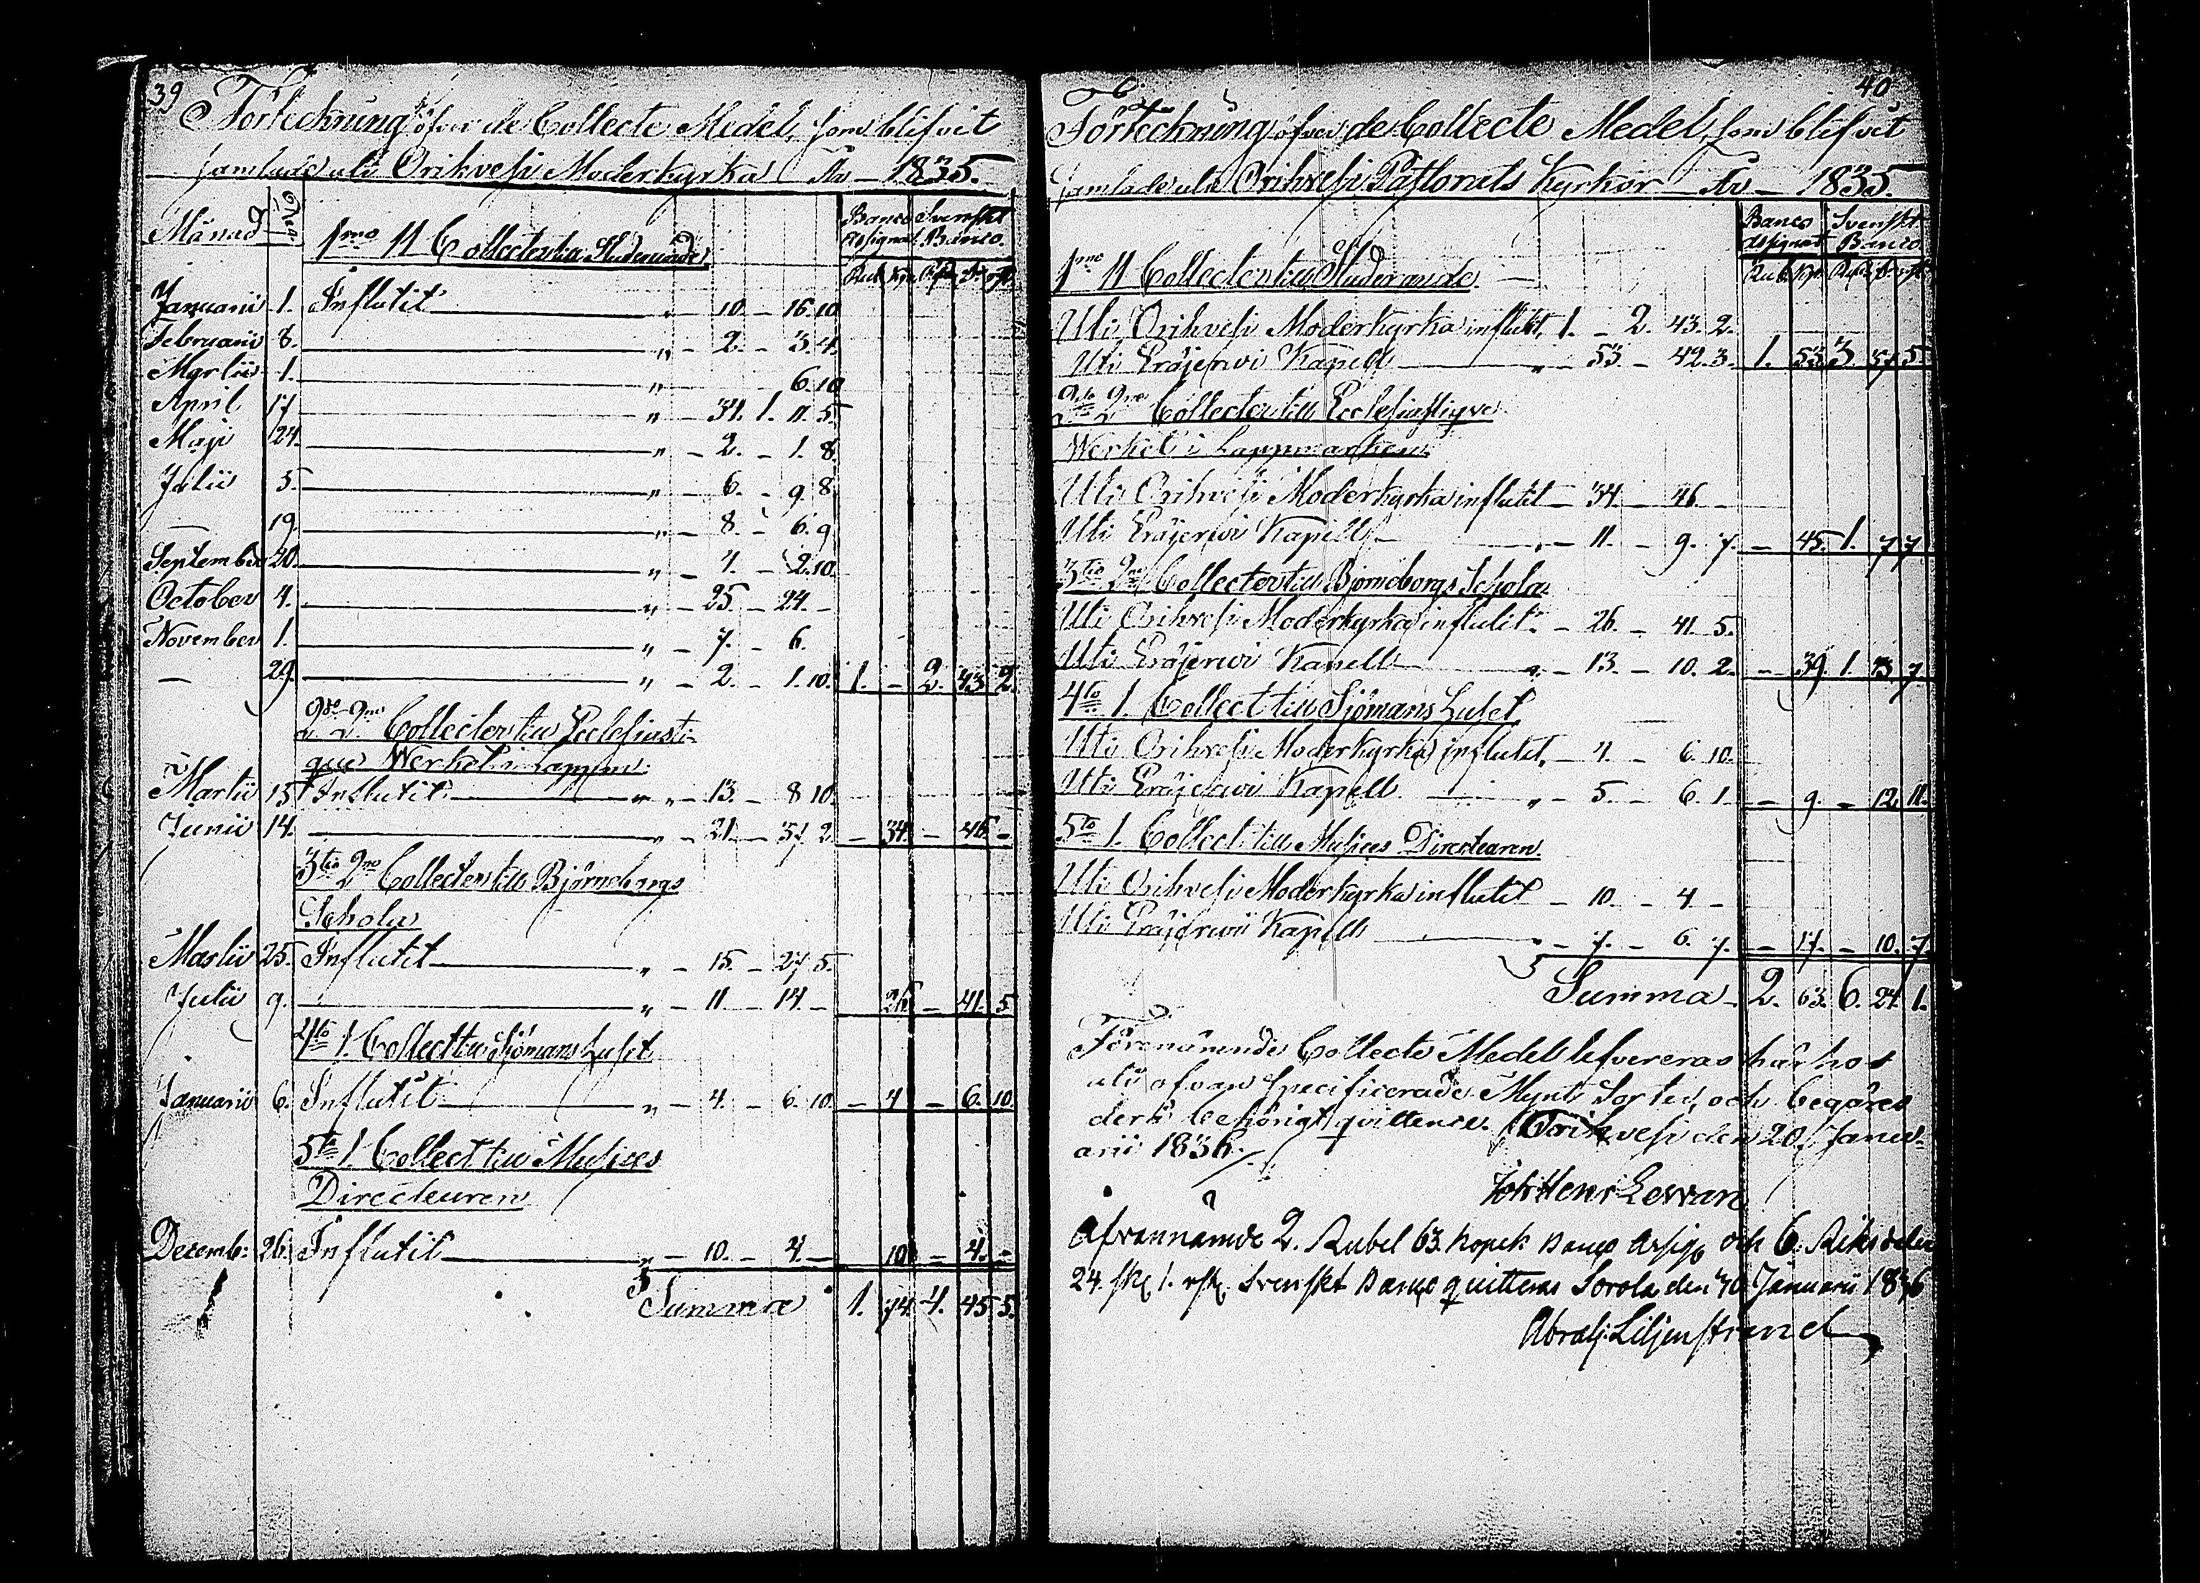 39
Förteckning öfver de Collecte Medel, som blifvit
samlade uti Orihvesi Moderkyrka År 1835.
Månad Dag. 1mo 11 Collecter till Studerande. Banco Assignat. Svenskt Banco.
Rub. Kop. Rdr s. rst.
Januarii 1. Influtit " - 10. - 16. 10
Februarii 8. " - 2. - 3. 4.
Martii 1. " 6. 10
April 17. " - 34. 1. 11. 5.
Maji 24. " - 2. - 1. 8.
Julii 5. " - 6. - 9. 8.
— 19. " - 8. - 6. 9
September 20. " - 4. - 2. 10.
October 4. " - 25. - 24. -
November 1. " - 7. - 6.
— 29. " - 2. - 1. 10. 1. - 2. 43. 2.
2do 2ne Collecter till Ecclesiasti-
que Werket i Lappm:
Martii 15 Influtit " - 13. - 8 10.
Junii 14. " - 21. - 37. 2. - 34. - 46. -
3tio 2ne Collecter till Björneborgs
Schola
Martii 25. Influtit " - 15. - 27. 5.
Julii 9. " - 11. - 14. - 26. - 41. 5
4to 1. Collect till Sjömans Huset
Januarii 6. Influtit " - 4. - 6. 10. - 4 - 6. 10.
5to 1. Collect till Musices
Directeuren
Decemb: 26. Influtit " - 10. - 4 - 10. - 4. -
Summa 1. 74. 4. 45. 5.
40
Förteckning öfver de Collecte Medel, som blifvit
samlade uti Orihvesi Pastorats Kyrkor År 1835.
Banco Assignat. Svenskt Banco.
1mo 11 Collecter till Studerande. Rub. Kop. Rdr s. rst.
Uti Orihvesi Moderkyrka influtit, 1. - 2. 43. 2.
Uti Eräjerwi Kapell " - 53. - 42. 3. 1. 53. 3. 37. 5
2do 2ne Collecter till Ecclesiastique
Werket i Lappmarken.
Uti Orihvesi Moderkyrka influtit - 34. - 46. -
Uti Eräjerwi Kapell - 11. - 9. 7. - 45. 1. 7. 7
3tio 2ne Collecter till Björneborgs Schola
Uti Orihvesi Moderkyrka influtit. - 26. - 41. 5.
Uti Eräjerwi Kapell " - 13. - 10. 2. - 39. 1. 3. 7.
4to 1. Collect till Sjömans Huset
Uti Orihvesi Moderkyrka influtit, - 4. - 6. 10.
Uti Eräjerwi Kapell " - 5. - 6. 1. - 9. - 12. 11.
5to 1. Collect till Musices Directeuren.
Uti Orihvesi Moderkyrka influtit - 10. - 4. -
Uti Eräjerwi Kapell - 7. - 6. 7. - 17. - 10. 7.
Summa 2. 63. 6. 24. 1.
Förenämnde Collecte Medel lefvereras härhos
uti ofvan specificerade Mynt Sorter, och begäres
derå behörigt qvittence. Orihvesi den 20. Janu-
arii 1836.
Joh Henr Lewan
Ofvannämde 2. Rubel 63. Kopek Banco Assign och 6. Riksdaler
24. sk. 1. rst. Svenskt Banco quitteras Sorola den 30 Januarii 1836
Abrah: Liljenstrand